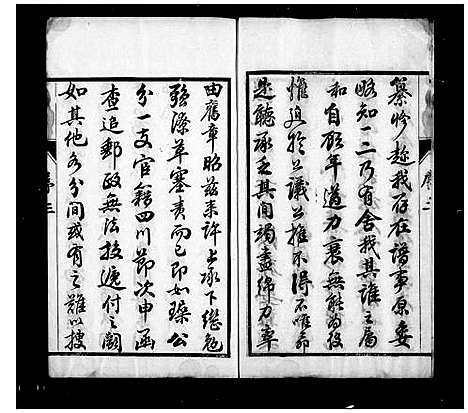 纂修趁我存在譜事原委
略知一二乃有舍我其誰之屬
和自顧年邁力衰無能為役
惟迫於公議公推不得不唯命
是聽承乏其間竭盡綿力率
序二
由舊章昭茲來許上承下繼勉
強潦草塞責而已即如璪公
分一支官籍四川節次申函
查追郵政無法投遞付之闕
如其他各分間或有之難以搜
序三